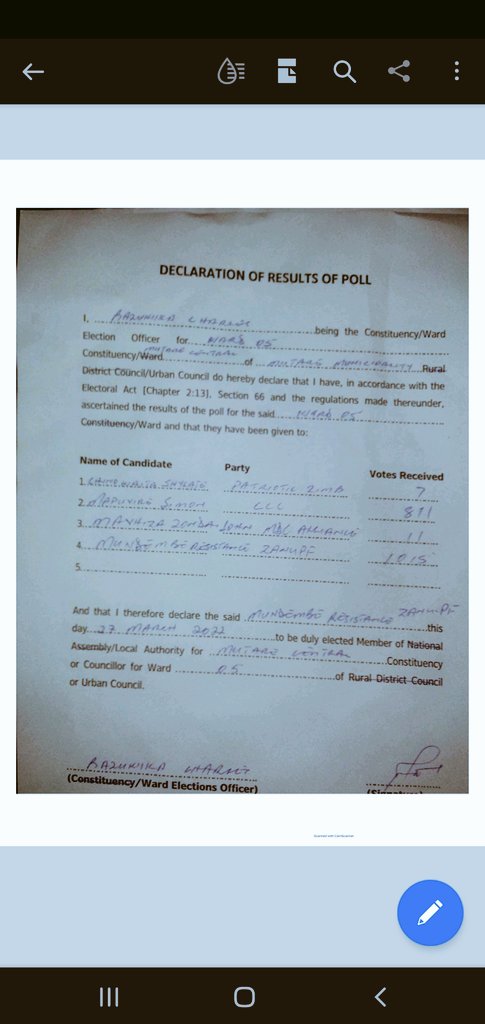 DECLARATION OF RESULTS OF POLL
I, ... CHARLES ... being the Constituency/Ward
Election Officer for WARD 05
MUTARE CENTRAL
Constituency/Ward of MUTARE MUNICIPALITY Rural
District Council/Urban Council do hereby declare that I have, in accordance with the
Electoral Act [Chapter 2:13], Section 66 and the regulations made thereunder,
ascertained the results of the poll for the said WARD 05
Constituency/Ward and that they have been given to:
Name of Candidate Party Votes Received
1. PATRIOTIC ZIMB 7
2. MAPUVIRE SIMON CCC 811
3. JOHN MDC ALLIANCE 11
4. MUNDEMBE RESISTANCE ZANUPF 1015
5.
And that I therefore declare the said MUNDEMBE RESISTANCE ZANUPF this
day 27 MARCH 2022 to be duly elected Member of National
Assembly/Local Authority for MUTARE CENTRAL Constituency
or Councillor for Ward 05 of Rural District Council
or Urban Council.
(Constituency/Ward Elections Officer)